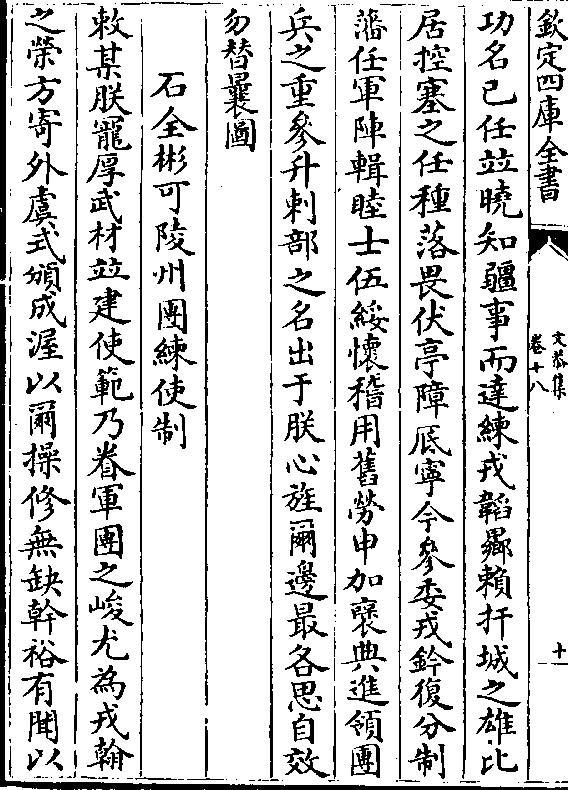 欽定四庫全書
文恭集
卷十八
十一
功名已任竝曉知疆事而達練戎韜鄹賴扞城之雄比
居控塞之任種落畏伏亭障厎寧今參委戎鈐復分制
藩任軍陣輯睦士伍綏懷稽用舊勞申加褒典進領團
兵之重參升刺部之名出于朕心旌爾邊最各思自效
勿替曩圖
石全彬可陵州團練使制
敕某朕寵厚武材竝建使範乃眷軍團之峻尤為戎翰
之榮方寄外虞式頒成渥以爾操修無缺幹裕有聞以